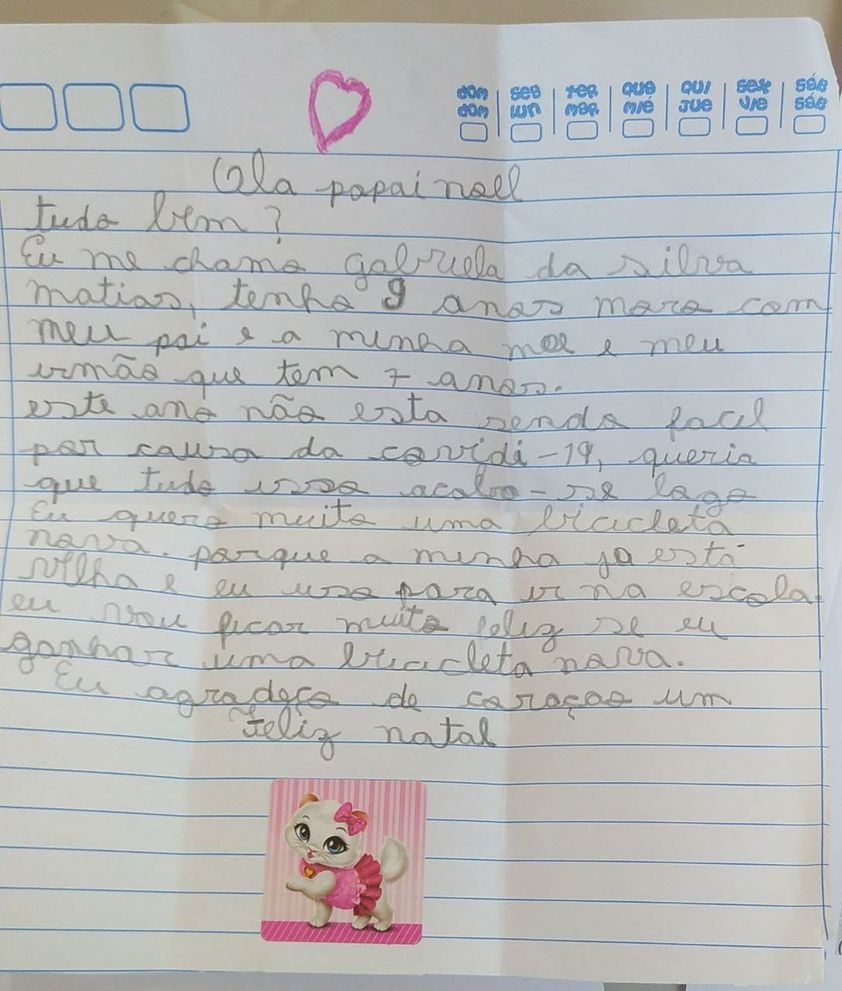 dom seg ter qua qui sex sáb
dom lun mar mié jue vie sáb
Ola papai noel
tudo bem?
Eu me chamo gabriela da silva
matias, tenho 9 anos moro com
meu pai e a minha mae e meu
irmão que tem 7 anos.
este ano não esta sendo facil
por causa da covidi-19, queria
que tudo isso acaba-se logo
Eu quero muito uma bicicleta
nova. porque a minha ja está
velha e eu uso para ir na escola.
eu vou ficar muito feliz se eu
ganhar uma bicicleta nova.
Eu agradeço de coraçao um
Feliz natal